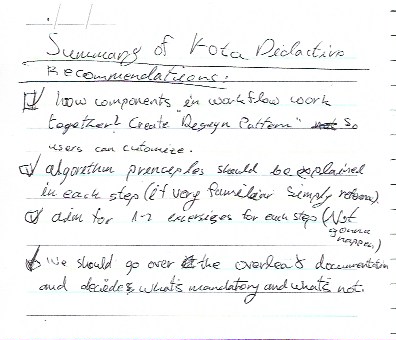 Summary of Kota Didactics
Recommendations:
How components "in workflow work
together? Create Design Pattern" so
users can cutomize.
algorithm prenceples should be explained
in each step (if very familiar simply reference)
aim for 1-2 exersizes for each step (Not
gonna
happen)
We should go over the overleaf documentation
and decide what's mandatory and what's not.